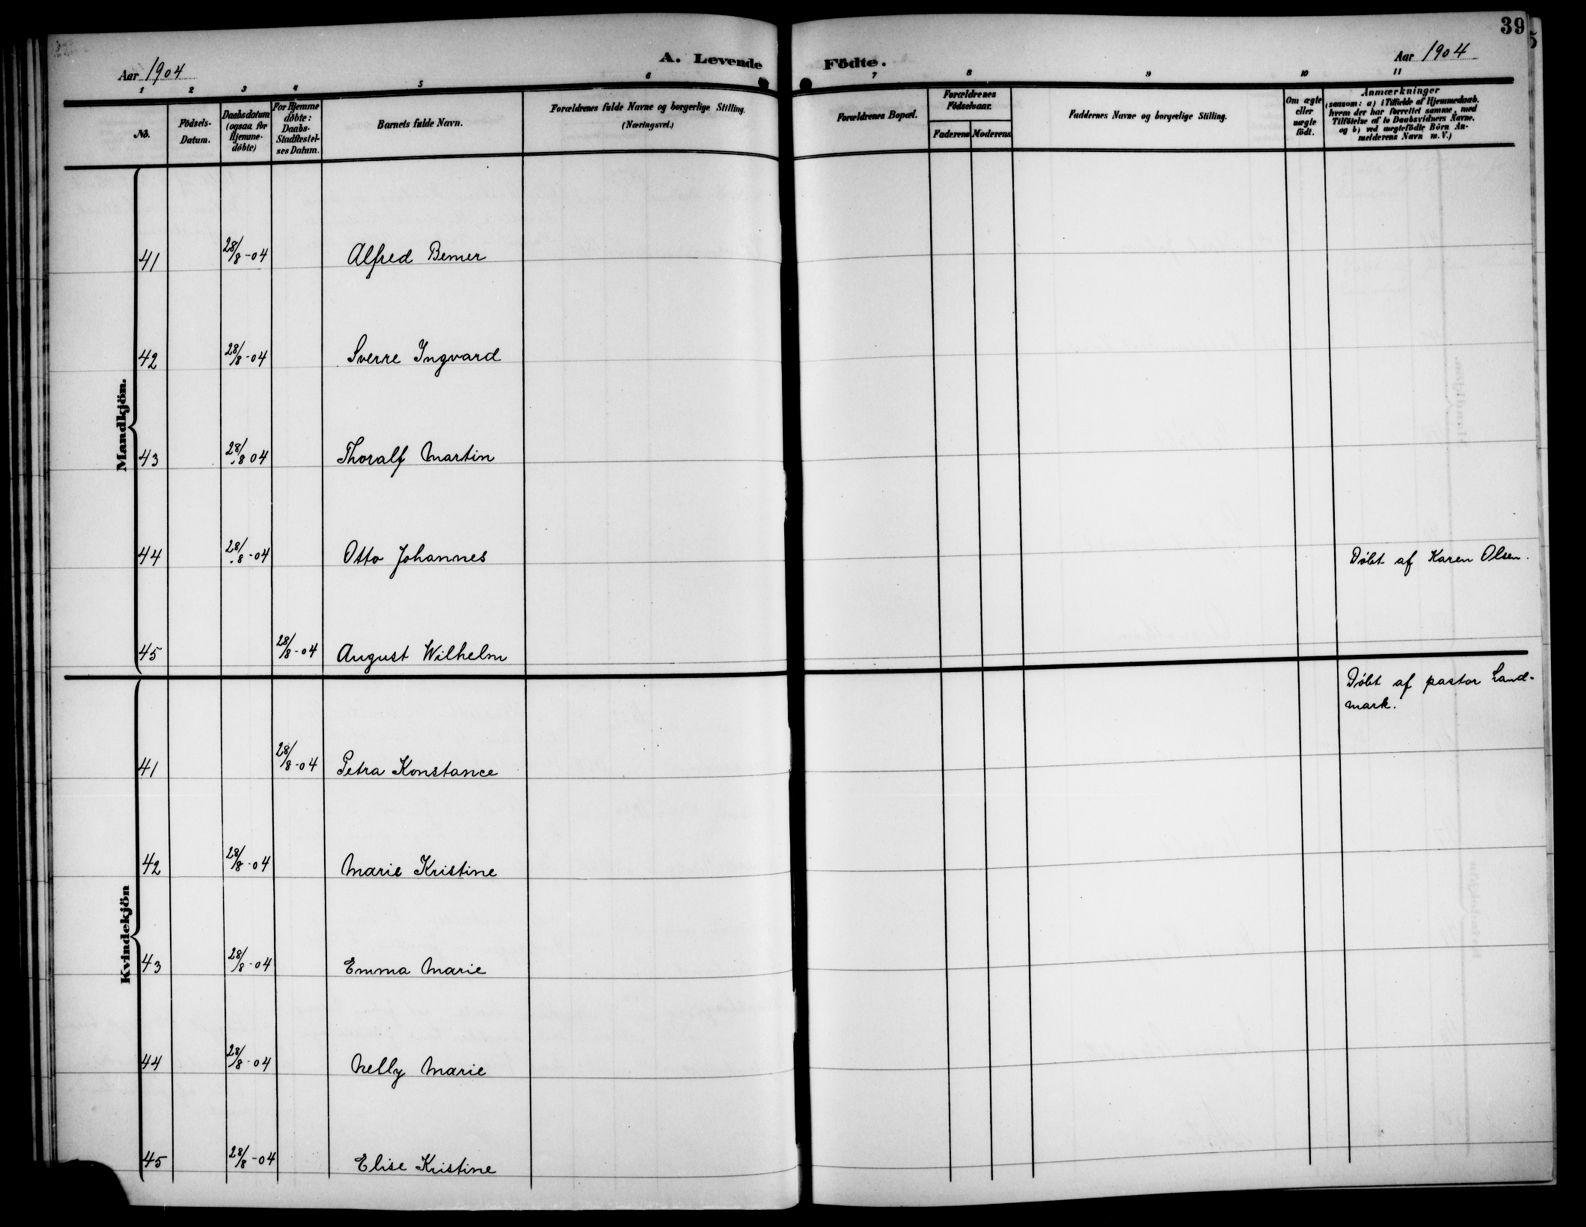 39
Aar 1904
A. Levende Födte.
Aar 1904
1 2 3 4 5 6 7 8 9 10 11
No.
Födsels-
Datum.
Daabsdatum
(ogsaa for
Hjemme-
døbte)
For Hjemme
døbte:
Daabs-
Stadfæstel-
ses Datum.
Barnets fulde Navn.
Forældrenes fulde Navne og borgerlige Stilling.
(Næringsvei.)
Forældrenes Bopæl.
Forældrenes
Födselsaar.
Faderens Moderens
Faddernes Navne og borgerlige Stilling.
Om ægte
eller
uægte
födt.
Anmærkninger
(saasom: a) i Tilfælde af Hjemmedaab,
hvem der har forrettet samme, med
Tilföielse af to Daabsvidners Navne,
og b) ved uægtefödte Börn An-
melderens Navn m. V.)
Mandkjön.
41 28/8-04 Alfred Berner
42 28/8-04 Sverre Ingvard
43 28/8 04 Thoralf Martin
44 28/8-04 Otto Johannes Døbt af Karen Olsen.
45 28/8-04 August Wilhelm
Kvindekjön
Døbt af pastor Land-
mark.
41 28/8-04 Petra Konstance
42 28/8-04 Marie Kristine
43 28/8-04 Emma Marie
44 28/8-04 Nelly Marie
45 28/8-04 Elise Kristine